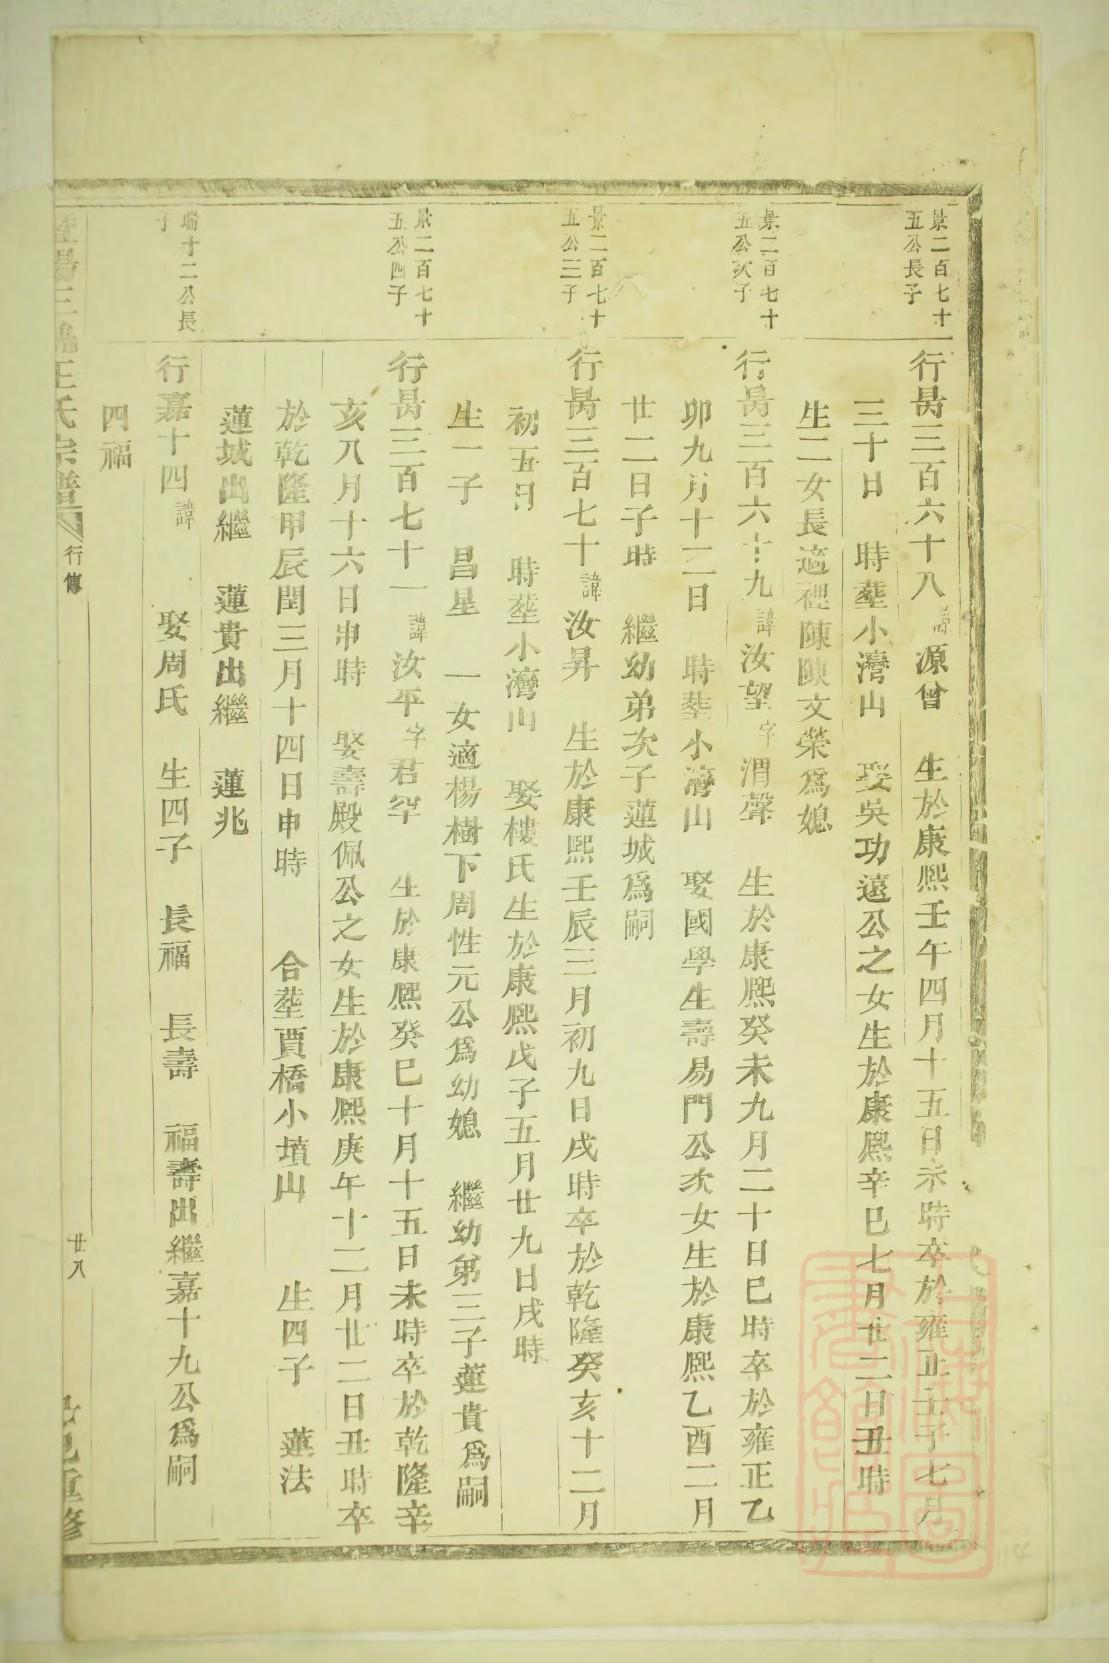 景二百七十
五公長子
行昺三百六十八諱源曾 生於康熙壬午四月十五日未時卒於雍正壬子七月
三十日 時塟小灣山 娶吳功遠公之女生於康熙辛巳七月廿二日丑時
生二女長適裡陳陳文榮爲媳
景二百七十
五公次子
行昺三百六十九諱汝望字渭聲 生於康熙癸未九月二十日巳時卒於雍正乙
卯九月十二日 時塟小灣山 娶國學生壽易門公次女生於康熙乙酉二月
廿二日子時 繼幼弟次子蓮城爲嗣
景二百七十
五公三子
行昺三百七十諱汝昇 生於康熙壬辰三月初九日戌時卒於乾隆癸亥十二月
初五日 時塟小灣山 娶樓氏生於康熙戊子五月廿九日戌時
生一子 昌星 一女適楊樹下周性元公爲幼媳 繼幼弟三子蓮貴爲嗣
景二百七十
五公四子
行昺三百七十一諱汝平字君罕 生於康熙癸巳十月十五日未時卒於乾隆辛
亥八月十六日申時 娶壽殿佩公之女生於康熙庚午十二月廿二日丑時卒
於乾隆甲辰閏三月十四日申時 合塟賈橋小墳山 生四子 蓮法
蓮城出繼 蓮貴出繼 蓮兆
瑞十二公長
子
行嘉十四諱 娶周氏 生四子 長福 長壽 福壽出繼嘉十九公爲嗣
四福
王氏宗譜
行傳
廿八
重修